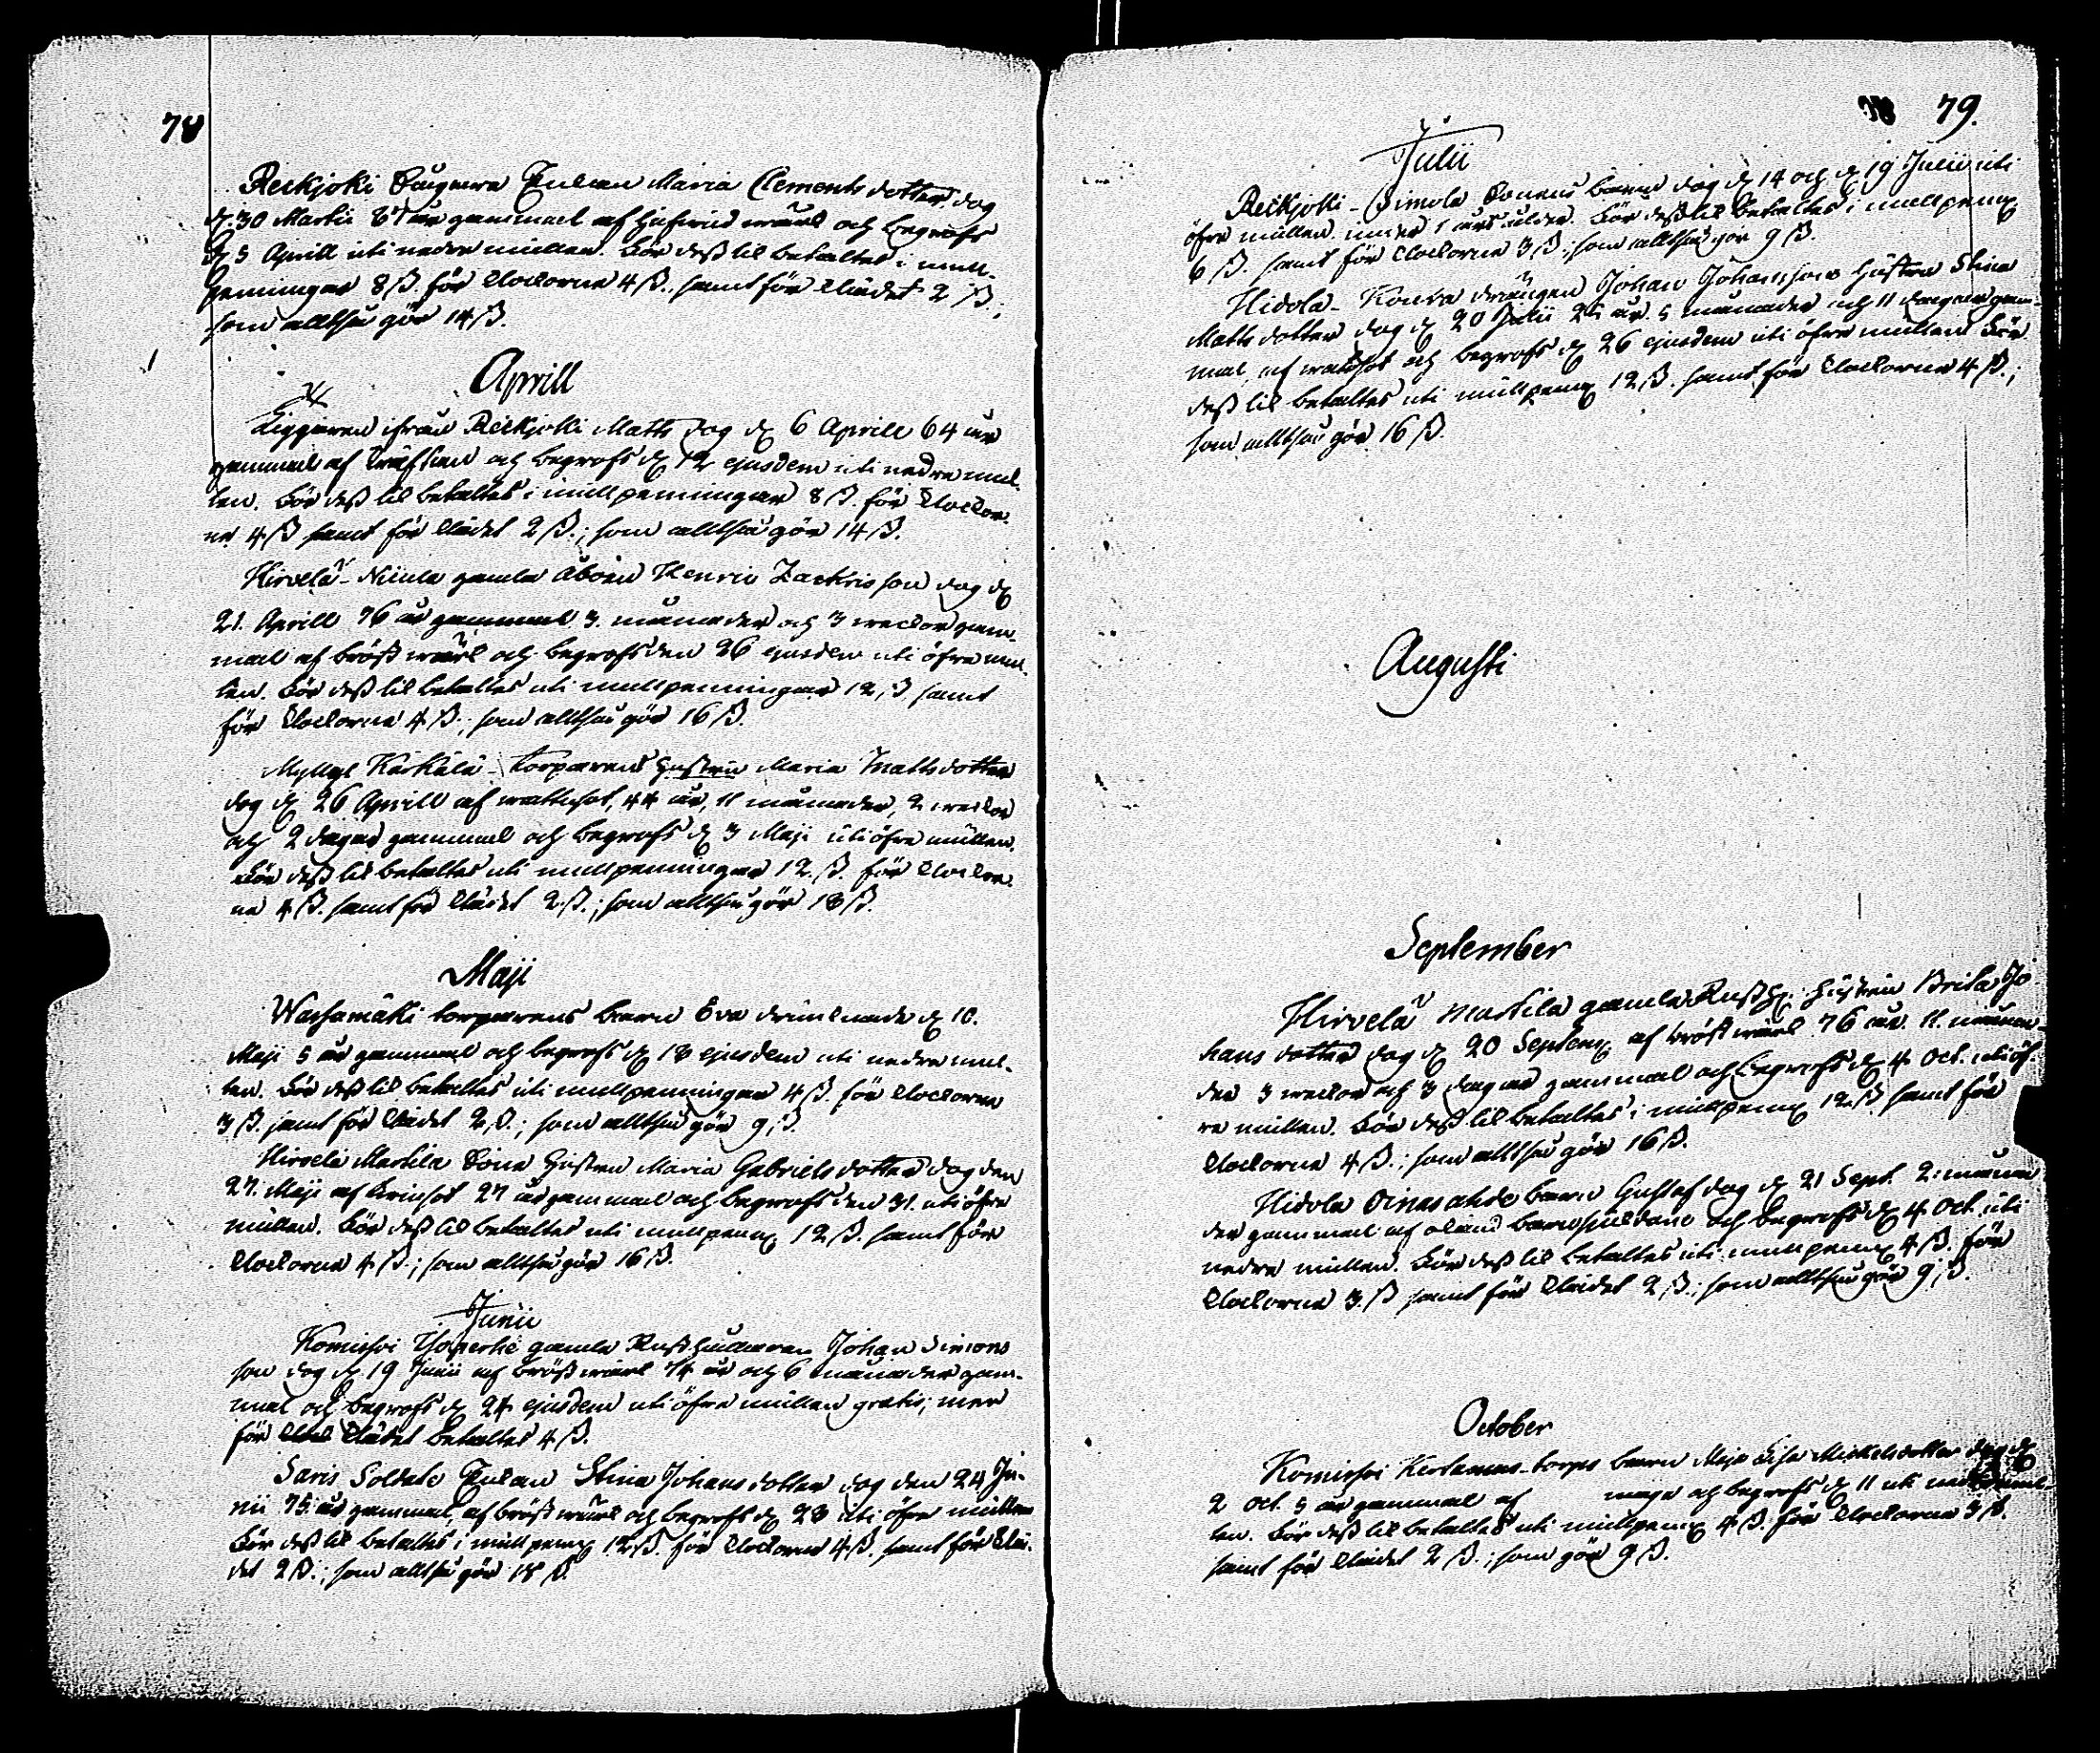 78
Reikjoki Enkan Maria Clements dotter dog
d 30 Martii 67 år gammal af hufwud wärk och begrofs
d 5 Aprill uti nedre mullen. Bör dess til betaltes i mull-
penningar 8 ß. för Klockorne 4 ß. samt för Klädet 2 ß.;
som alltså gör 14 ß.
Aprill
Tiggaren ifrån Reikjoki Matts dog d 6 Aprill 64 år
gammal af Kräftan och begrofs d 12 ejusdem uti nedre mul-
len. Bör dess til betaltes i mullpenningar 8 ß. för Klockor-
ne 4 ß samt för Klädet 2 ß.; som alltså gör 14 ß.
Hirvelä Nicula gamla Åboen Henric Zachrisson dog d
21. Aprill 76 år gammal 3. månader och 3 weckor gam-
mal af bröst wärk och begrofs den 26 ejusdem uti öfre mul-
len. Bör dess til betaltes uti mullpenningar 12 ß samt
för Klockorne 4 ß.; som alltså gör 16 ß.
Myllyl Kärkälä Torparens Hustru Maria Mattsdotter
dog d 26 Aprill af wattusot, 44 år, 11 månader, 2 weckor
och 2 dagar gammal och begrofs d 3 Maji uti öfre mullen.
Bör dess til betaltes uti mullpenningar 12. ß. för Klockor-
ne 4 ß. samt för Klädet 2. ß.; som alltså gör 18 ß.
Maji
Wachamäki torparens barn Eva drunknade d 10.
Maji 5 år gammal och begrofs d 18 ejusdem uti nedre mul-
len. Bör dess til betaltes uti mullpenningar 4 ß. för Klockorne
3 ß. samt för Klädet 2 ß.; som alltså gör 9 ß.
Hirvelä Markila Sone Hustru Maria Gabriels dotter dog den
27. Maji af 27 år gammal och begrofs den 31. uti öfre
mullen. Bör dess til betaltes uti mullpeng 12 ß. samt för
Klockorne 4 ß.; som alltså gör 16 ß.
Junii
Komisuoi gamla Rusthållaren Johan Simons
son dog d 19 Junii af bröst wärk 74 år och 6 månader gam-
mal och begrofs d 24 ejusdem uti öfre mullen gratis; men
för Klädet betaltes 4 ß.
Saris Soldats Enkan Stina Johans dotter dog den 24 Ju-
nii 75 år gammal, af bröst wärk och begrofs d 28 uti öfre mullen
Bör dess til betaltes i mullpeng 12 ß. för Klockorne 4 ß. samt för Klä-
det 2 ß.; som alltså gör 18 ß.
79.
Julii
Reikjoki - Simola Sonens barn dog d 14 och d 19 Julii uti
öfre mullen under 1 års ålder. Bör dess til betaltes i mullpeng
6 ß. samt för Klockorne 3 ß.; som alltså gör 9 ß.
Hidola - Konka drängen Johan Johansons Hustru Stina
Matts dotter dog d 20 Julii 25 år. 5 månader och 11 dagar gam-
mal, af wattsot och begrofs d 26 ejusdem uti öfre mullen Bör
dess til betaltes uti mullpeng 12 ß. samt för Klockorne 4 ß.;
som alltså gör 16 ß.
Augusti
September
Hirvelä Markila gamla Rusth. Hustru Brita Jo-
hans dotter dog d 20 Septem af bröst wärk 76 år. 11. måna-
der 3 weckor och 3 dagar gammal och begrofs d 4 Oct. uti öf-
re mullen. Bör dess til betaltes i mullpeng 12 ß samt för
Klockorne 4 ß.; som alltså gör 16 ß.
Hidola Oinasahde barn Gustaf dog d 21 Sept. 2. måna-
der gammal af okänd barnsjukdom och begrofs d 4 Oct. uti
nedre mullen. Bör dess til betaltes uti mullpeng 4 ß. för
Klockorne 3. ß samt för Klädet 2 ß.; som alltså gör 9 ß.
October
Komisuoi torps barn Maja Lisa Mickelsdotter dog d
2 Oct. 5 år gammal af och begrofs d 11 uti nedre mul-
len. Bör dess til betaltes uti mullpeng 4 ß. för Klockorne 3 ß.
samt för Klädet 2 ß.; som gör 9 ß.